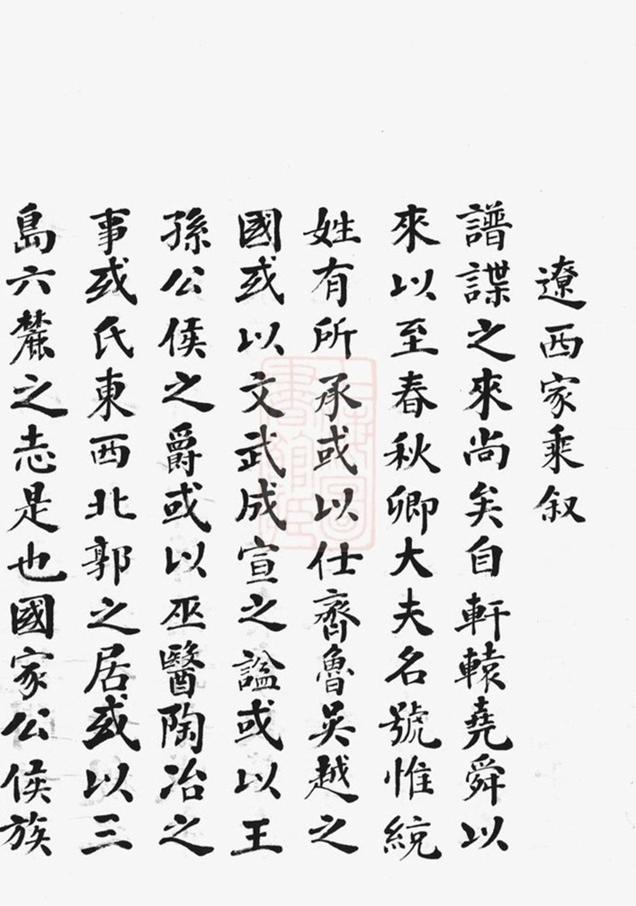 遼西家乘叙
譜諜之來尚矣自軒轅堯舜以
來以至春秋卿大夫名號惟統
姓有所承或以仕齊魯吴越之
國或以文武成宣之謚或以王
孫公侯之爵或以巫醫陶冶之
事或氏東西北郭之居或以三
島六麓之志是也國家公侯族